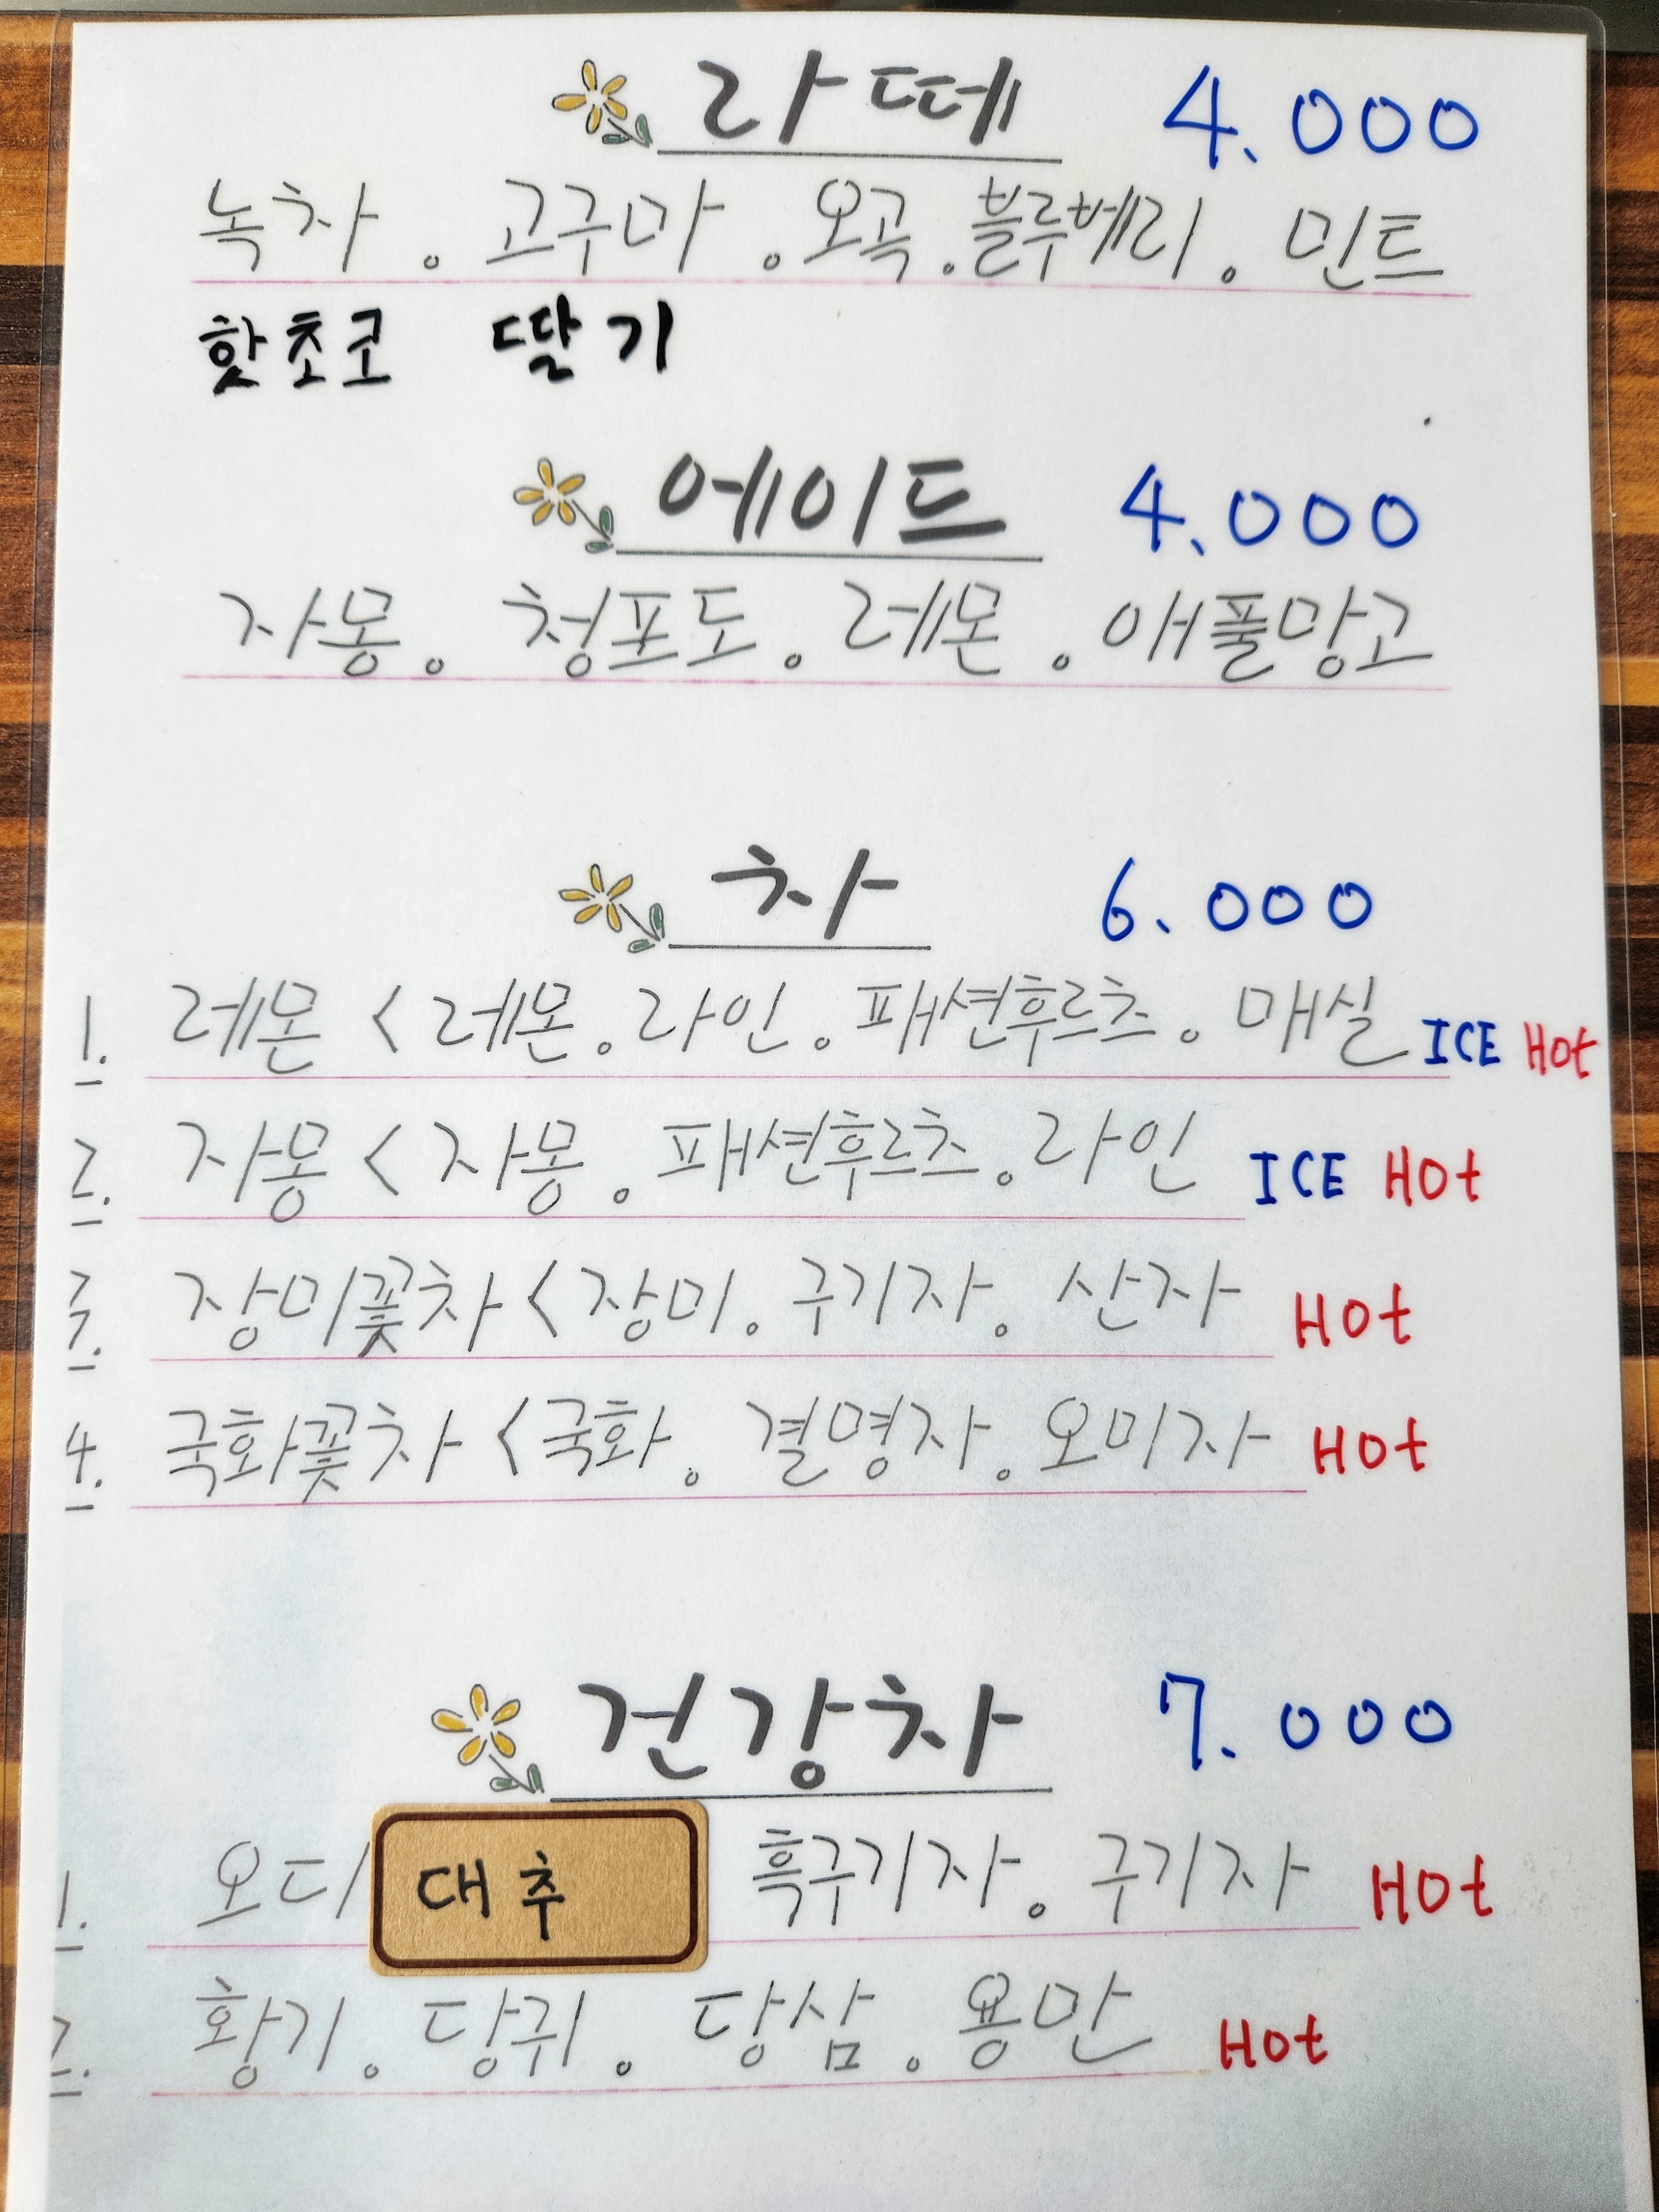 라떼 4.000
녹차. 고구마. 오곡. 블루베리. 민트
핫초코 딸기
에이드 4.000
자몽. 청포도. 레몬. 애플망고
차 6.000
1. 레몬 < 레몬. 라인. 패션후르츠. 매실 ICE Hot
2. 자몽 < 자몽. 패션후르츠. 라인 ICE Hot
3. 장미꽃차 < 장미. 구기자. 산자 Hot
4. 국화꽃차 < 국화. 결명자. 오미자 Hot
건강차 7.000
1. 오디 대추 흑구기자. 구기자 Hot
2. 황기. 당귀. 당삼. 용만 Hot